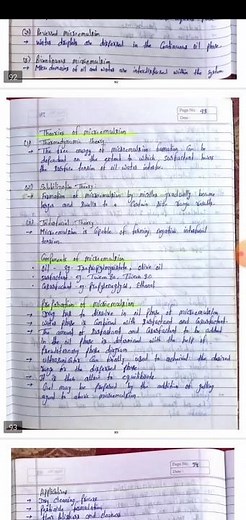 (2) Reversed microemulsion
→ Water droplets are dispersed in the Continuous oil phase.
(3) Bicontinuous microemulsion
→ Micro domains of oil and water are interdispersed within the system
92
Page No. 93
Date:
Theories of microemulsion
(1) Thermodynamic theory
→ The free energy of microemulsion formation can be
dependent on the extent to which surfactant lowers
the surface tension of oil-water interface.
(2) Solubilization Theory
→ Formation of microemulsion by micelles gradually become
larger and swells to a certain size range results.
(3) Interfacial Theory
→ Microemulsion is capable of forming negative interfacial
tension.
Components of microemulsion
Oil - eg Isopropylmyristate, olive oil
Surfactant eg Tween 80, Tween 20
Cosurfactant eg Propylene glycol, Ethanol
Preparation of microemulsion
→ Drug to dissolve in oil phase of microemulsion
→ Water phase is combined with surfactant and cosurfactant.
→ The amount of surfactant and cosurfactant to be added
in the oil phase is determined with the help of
Pseudoternary phase diagram.
→ Ultrasonicator can finally used to achieved the desired
range for the dispersed phase.
→ It is then allow to equilibrate.
→ Gel may be prepared by the addition of gelling
agent to above microemulsion.
93
Page No. 94
Date:
Applications
→
→ Pesticide formulation
→